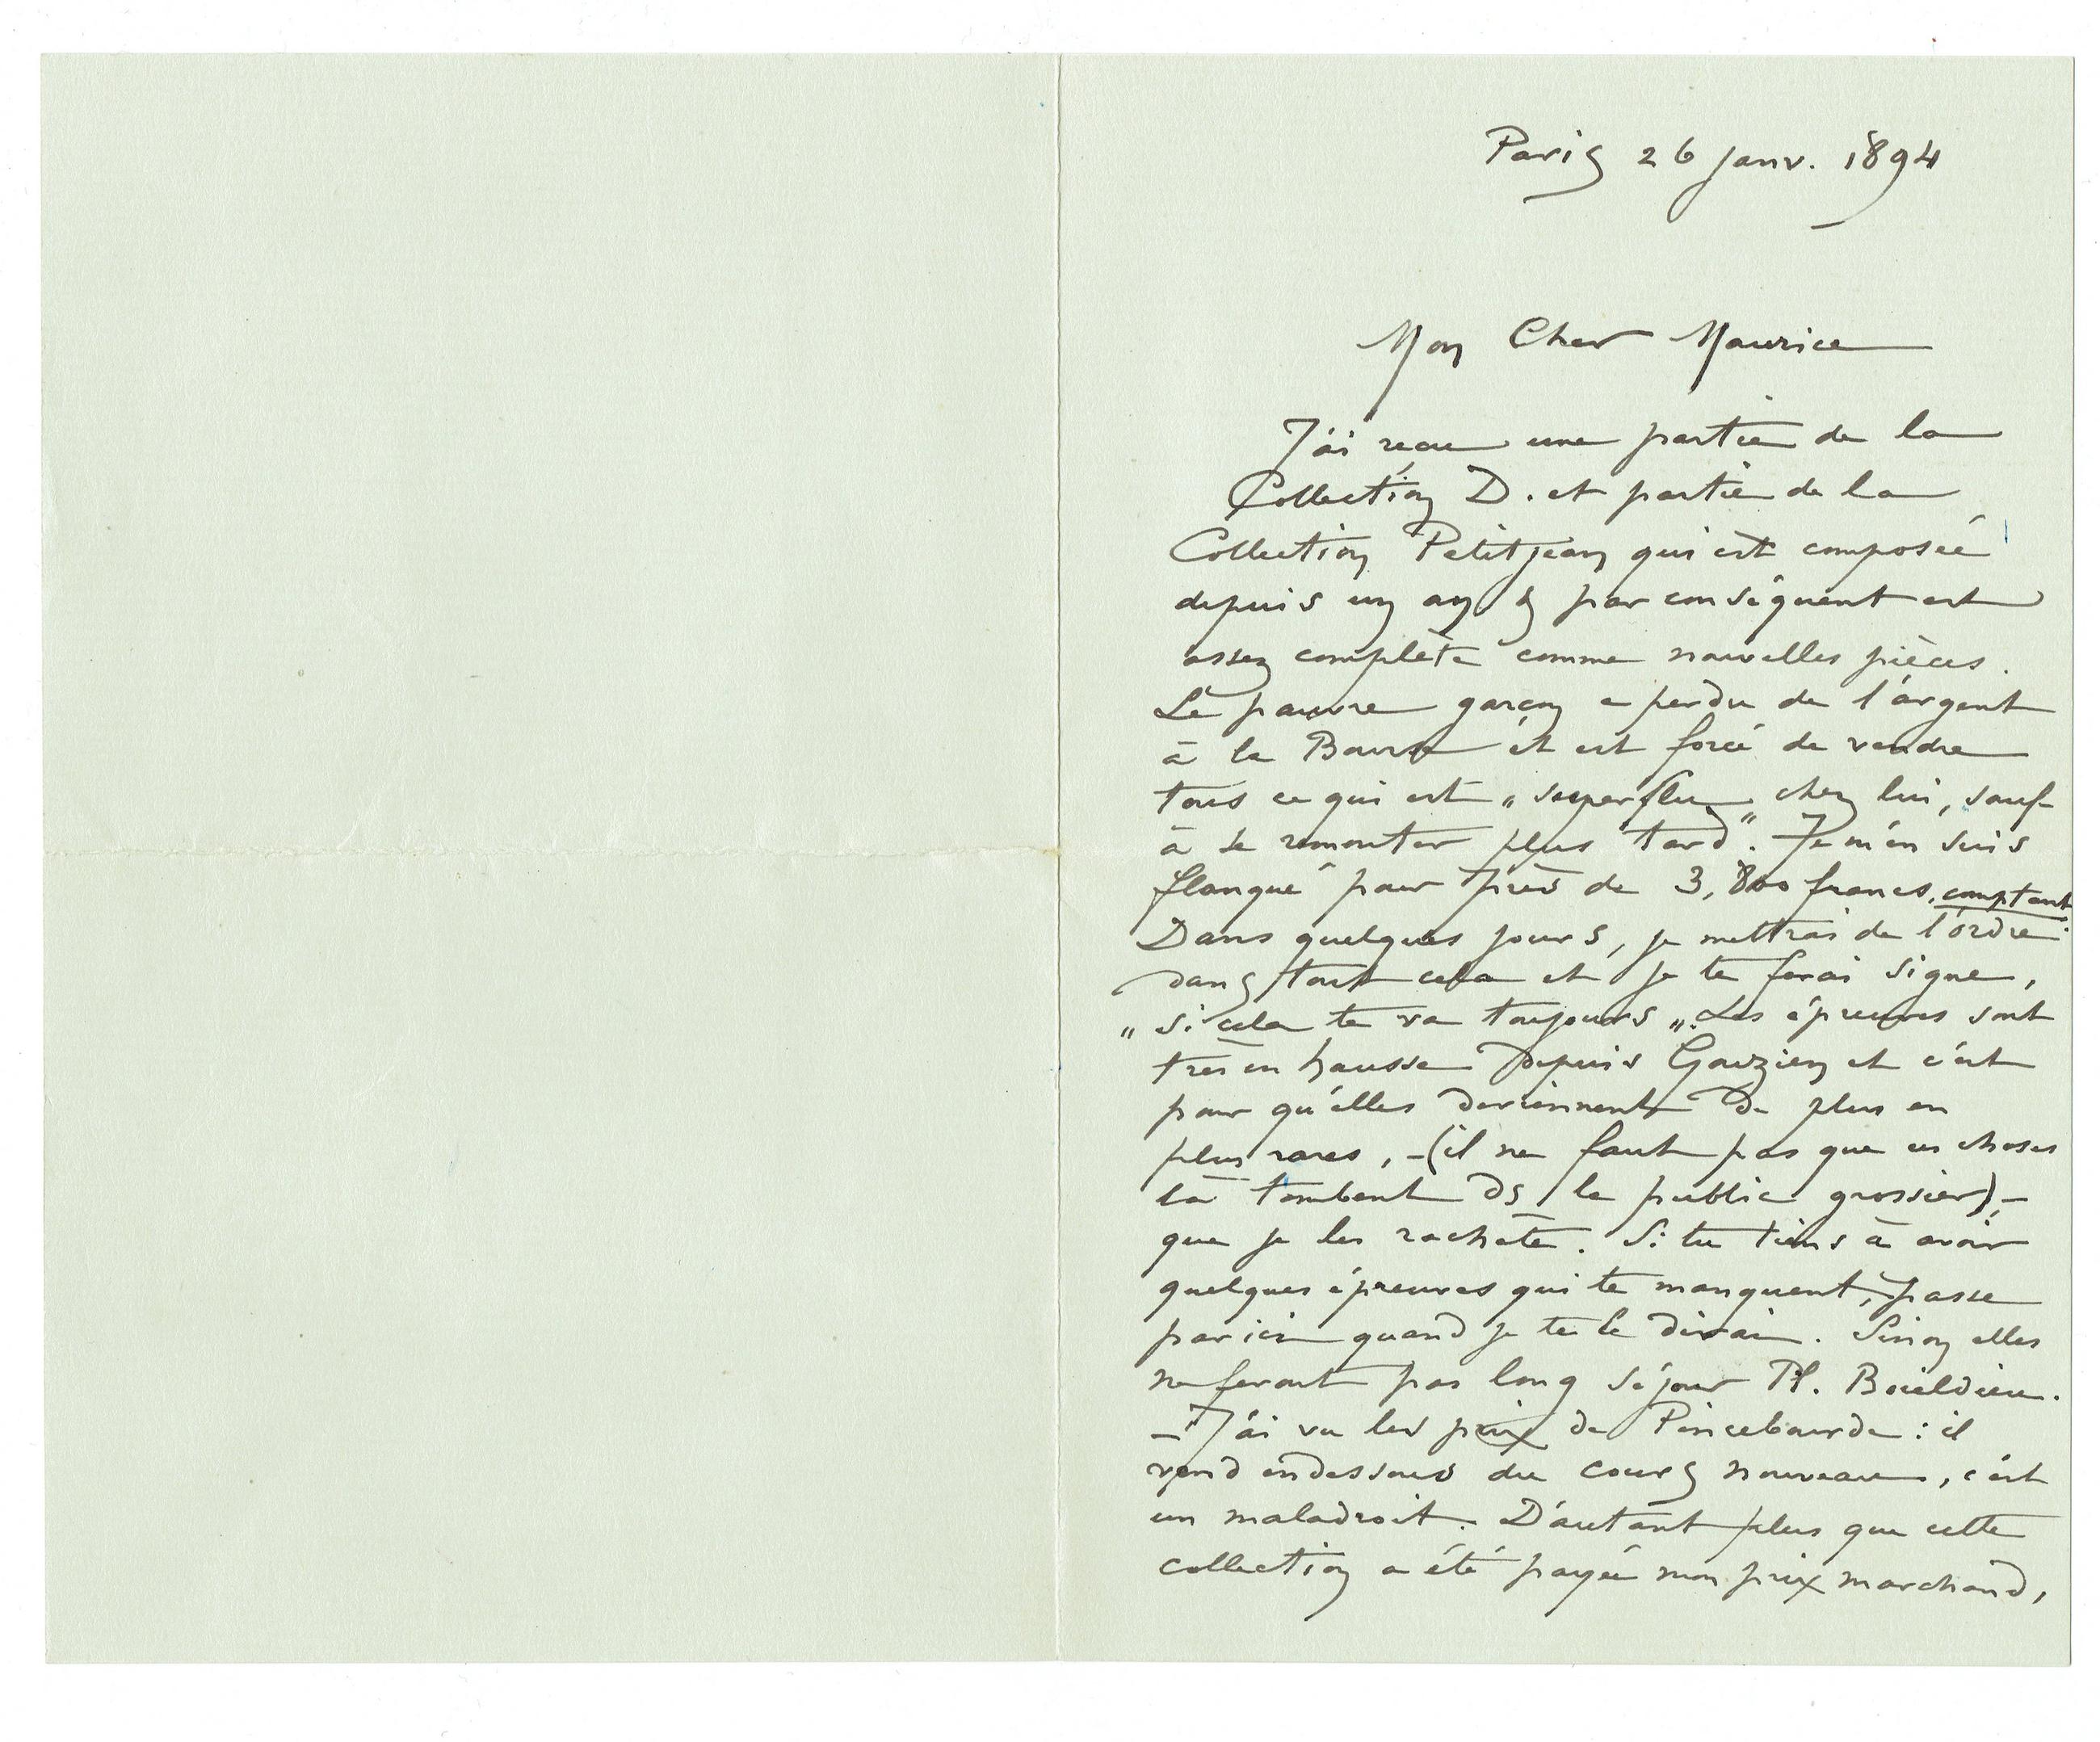 Paris 26 janv. 1894
Mon Cher Maurice
J'ai reçu une partie de la
Collection D. et partie de la
Collection Petitjean qui est composée
depuis un an & par conséquent est
assez complète comme nouvelles pièces.
Le pauvre garçon a perdu de l'argent
à la Bourse et est forcé de vendre
tous ce qui est „superflu„ chez lui, sauf
à se remonter plus tard. Je m'en suis
flanqué pour près de 3,800 francs, comptant.
Dans quelques jours, je mettrai de l'ordre
dans tout cela et je te ferai signe,
„si cela te va toujours„. Les épreuves sont
très en hausse depuis Gauzien et c'est
pour qu'elles deviennent de plus en
plus rares, -(il ne faut pas que ces choses
là tombent ds le public grossier),-
que je les rachète. Si tu tiens à avoir
quelques épreuves qui te manquent, passe
par ici quand je te le dirai. Sinon elles
ne feront pas long séjour Pl. Boieldieu.
- J'ai vu les prix de Pincebourde: il
vend endessous du cours nouveau, c'est
un maladroit. D'autant plus que cette
collection a été payée mon prix marchand,